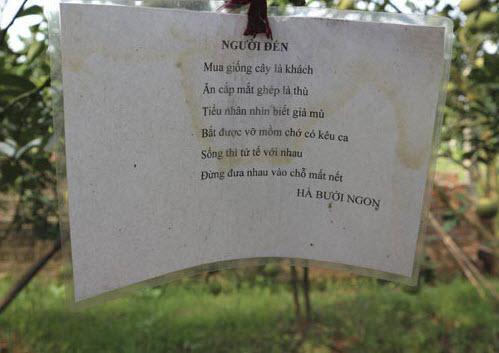 NGƯỜI ĐẾN
Mua giống cây là khách
Ăn cắp mắt ghép là thù
Tiểu nhân nhìn biết giả mù
Bắt được vỡ mồm chớ có kêu ca
Sống thì tử tế với nhau
Đừng đưa nhau vào chỗ mất nết
HÀ BƯỞI NGON